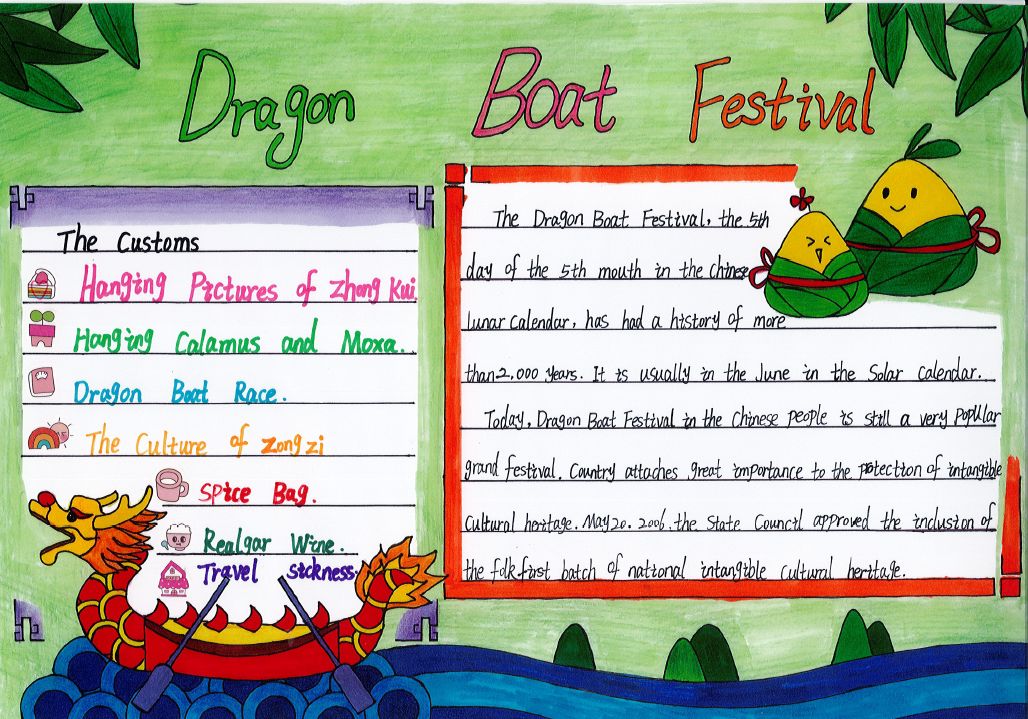 Dragon Boat Festival
The Customs
Hanging Pictures of Zhong Kui.
Hanging Calamus and Moxa.
Dragon Boat Race.
The Culture of Zongzi
Spice Bag.
Realgar Wine.
Travel sickness.
The Dragon Boat Festival, the 5th
day of the 5th mouth in the Chinese
lunar calendar, has had a history of more
than 2,000 years. It is usually in the June in the Solar Calendar.
Today, Dragon Boat Festival in the Chinese people is still a very popular
grand festival. Country attaches great importance to the protection of intangible
cultural heritage. May 20. 2006. the State Council approved the inclusion of
the folk first batch of national intangible cultural heritage.